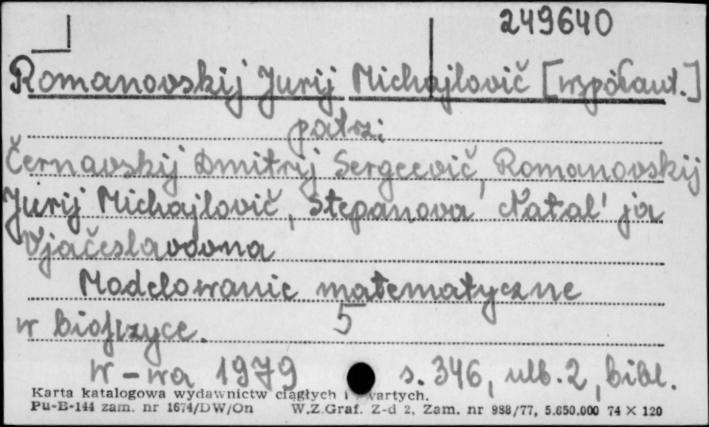 249640
Romanovskij Jurij Michajlovič [współaut.]
patrz:
Černavskij Dmitrij Sergeevič, Romanovskij
Jurij Michajlovič, Stepanova Natal'ja
Vjačeslavovna
Modelowanie matematyczne
w biofizyce. 5
W-wa 1979 s. 346, nlb. 2, bibl.
Karta katalogowa wydawnictw ciągłych i zwartych.
Pu-B-144 zam. nr 1674/DW/On W.Z.Graf. Z-d 2, Zam. nr 988/77, 5.650.000 74 × 120